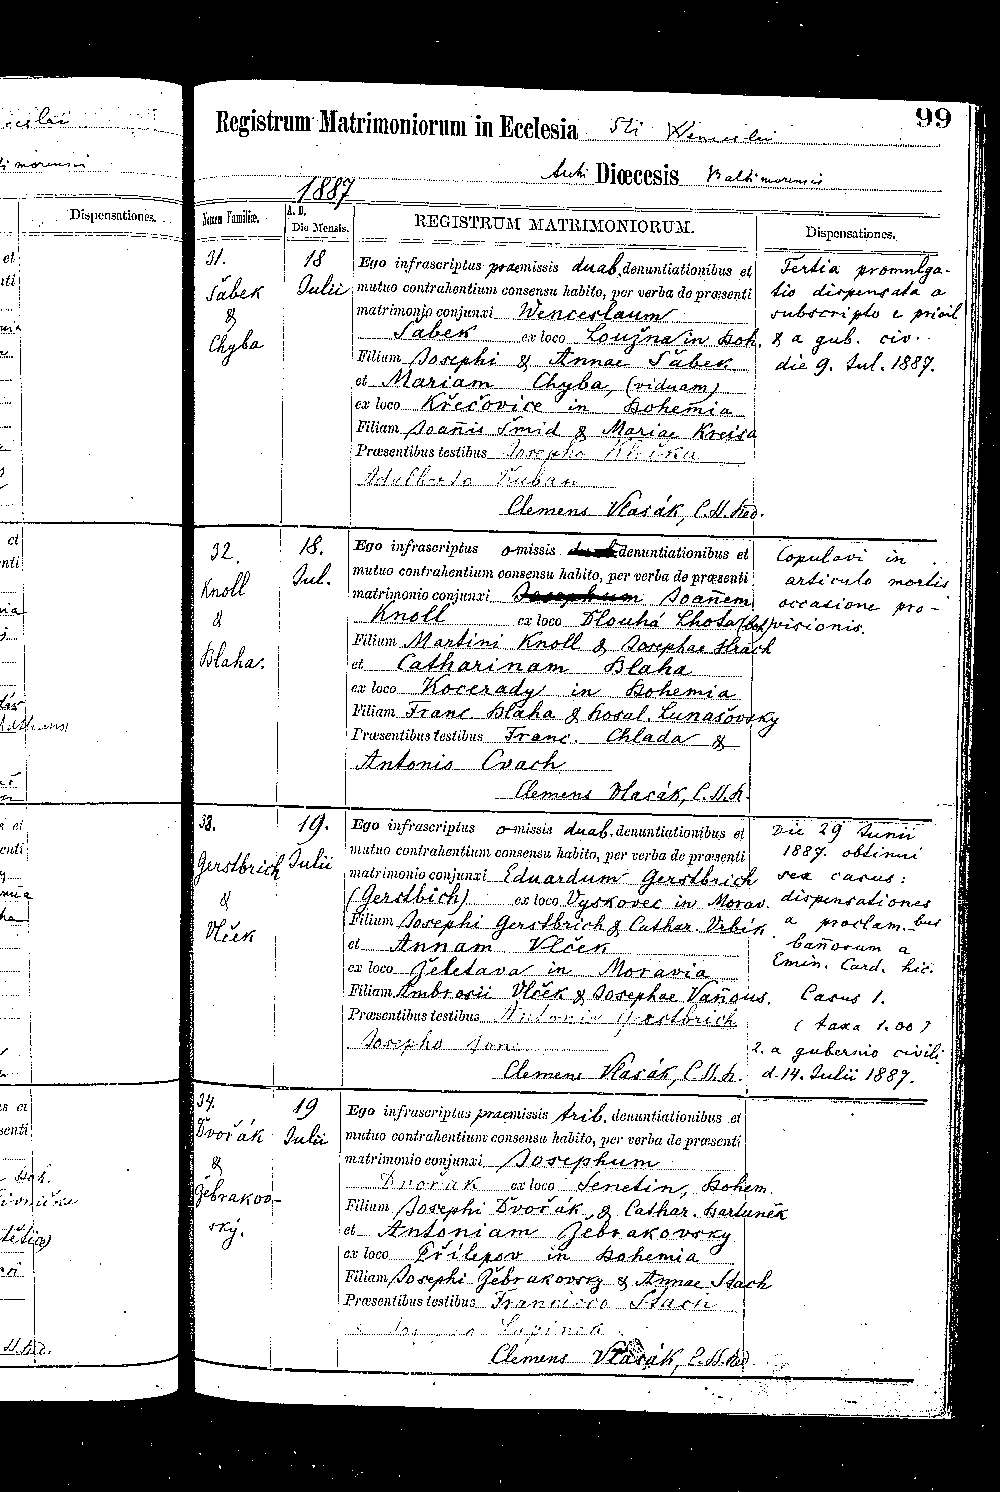 99
Registrum Matrimoniorum in Ecclesia Sti Wenceslai
Archi Diœcesis Baltimorensis
1887
Dispensationes.
Nomen Familiæ.
A. D.
Die Mensis.
REGISTRUM MATRIMONIORUM.
Dispensationes.
31.
Šabek
&
Chyba
18
Julii
Ego infrascriptus praemissis duab. denuntiationibus et
mutuo contrahentium consensu habito, per verba de præsenti
matrimonio conjunxi Wenceslaum
Šabek ex loco Loužna in Boh.
Filium Josephi & Annae Šabek
et Mariam Chyba, (viduam)
ex loco Křečovice in Bohemia
Filiam Joañis Šmid & Mariae Kreisa
Præsentibus testibus Josepho
Adalberto
Clemens Vlasák, C.SS.Red.
Tertia promulga-
tio dispensata a
subscripto e privil
& a gub. civ.
die 9. Jul. 1887.
32.
Knoll
&
Blaha.
18.
Jul.
Ego infrascriptus omissis denuntiationibus et
mutuo contrahentium consensu habito, per verba de præsenti
matrimonio conjunxi Josephum Joañem
Knoll ex loco Dlouhá Lhota
Filium Martini Knoll & Josephae Hrach
et Catharinam Blaha
ex loco Kocerady in Bohemia
Filiam Franc. Blaha & Rosal. Lunašovsky
Præsentibus testibus Franc. Chlada &
Antonio Cvach
Clemens Vlasák, C.SS.R.
Copulavi in
articulo mortis
occasione pro-
visionis.
33.
Gerstbrich
&
Vlček
19.
Julii
Ego infrascriptus omissis duab. denuntiationibus et
mutuo contrahentium consensu habito, per verba de præsenti
matrimonio conjunxi Eduardum Gerstbrich
(Gerstbich) ex loco Vyskovec in Morav.
Filium Josephi Gerstbrich & Cathar. Vrbik
et Annam Vlček
ex loco Želetava in Moravia
Filiam Ambrosii Vlček & Josephae Vañous.
Præsentibus testibus Antonio Gerstbrich
Josepho
Clemens Vlasák, C.SS.R.
Die 29 Junii
1887. obtinui
sex casus:
dispensationes
a proclam.bus
bañorum a
Emin. Card. hic.
Casus 1.
(taxa 1.00)
2. a gubernio civili
d. 14. Julii 1887.
34.
Dvořák
&
Žebrakov-
ský.
19
Julii
Ego infrascriptus praemissis trib. denuntiationibus et
mutuo contrahentium consensu habito, per verba de præsenti
matrimonio conjunxi Josephum
Dvořák ex loco Senetin, Bohem.
Filium Josephi Dvořák, & Cathar. Bartuněk
et Antoniam Žebrakovsky
ex loco Přílepov in Bohemia
Filiam Josephi Žebrakovsky & Annae Stach
Præsentibus testibus Francisco Stach
Clemens Vlasák, C.SS.Red.